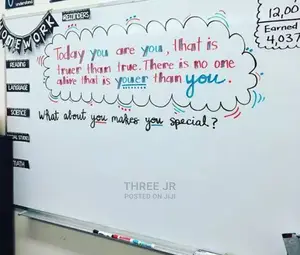 understand
REMINDERS
HOMEWORK
12,00
Earned
4,037
Today you are you, that is
truer than true. There is no one
alive that is youer than you.
What about you makes you special?
READING
LANGUAGE
SCIENCE
SOCIAL STUDIES
MATH
THREE JR
POSTED ON JIJI